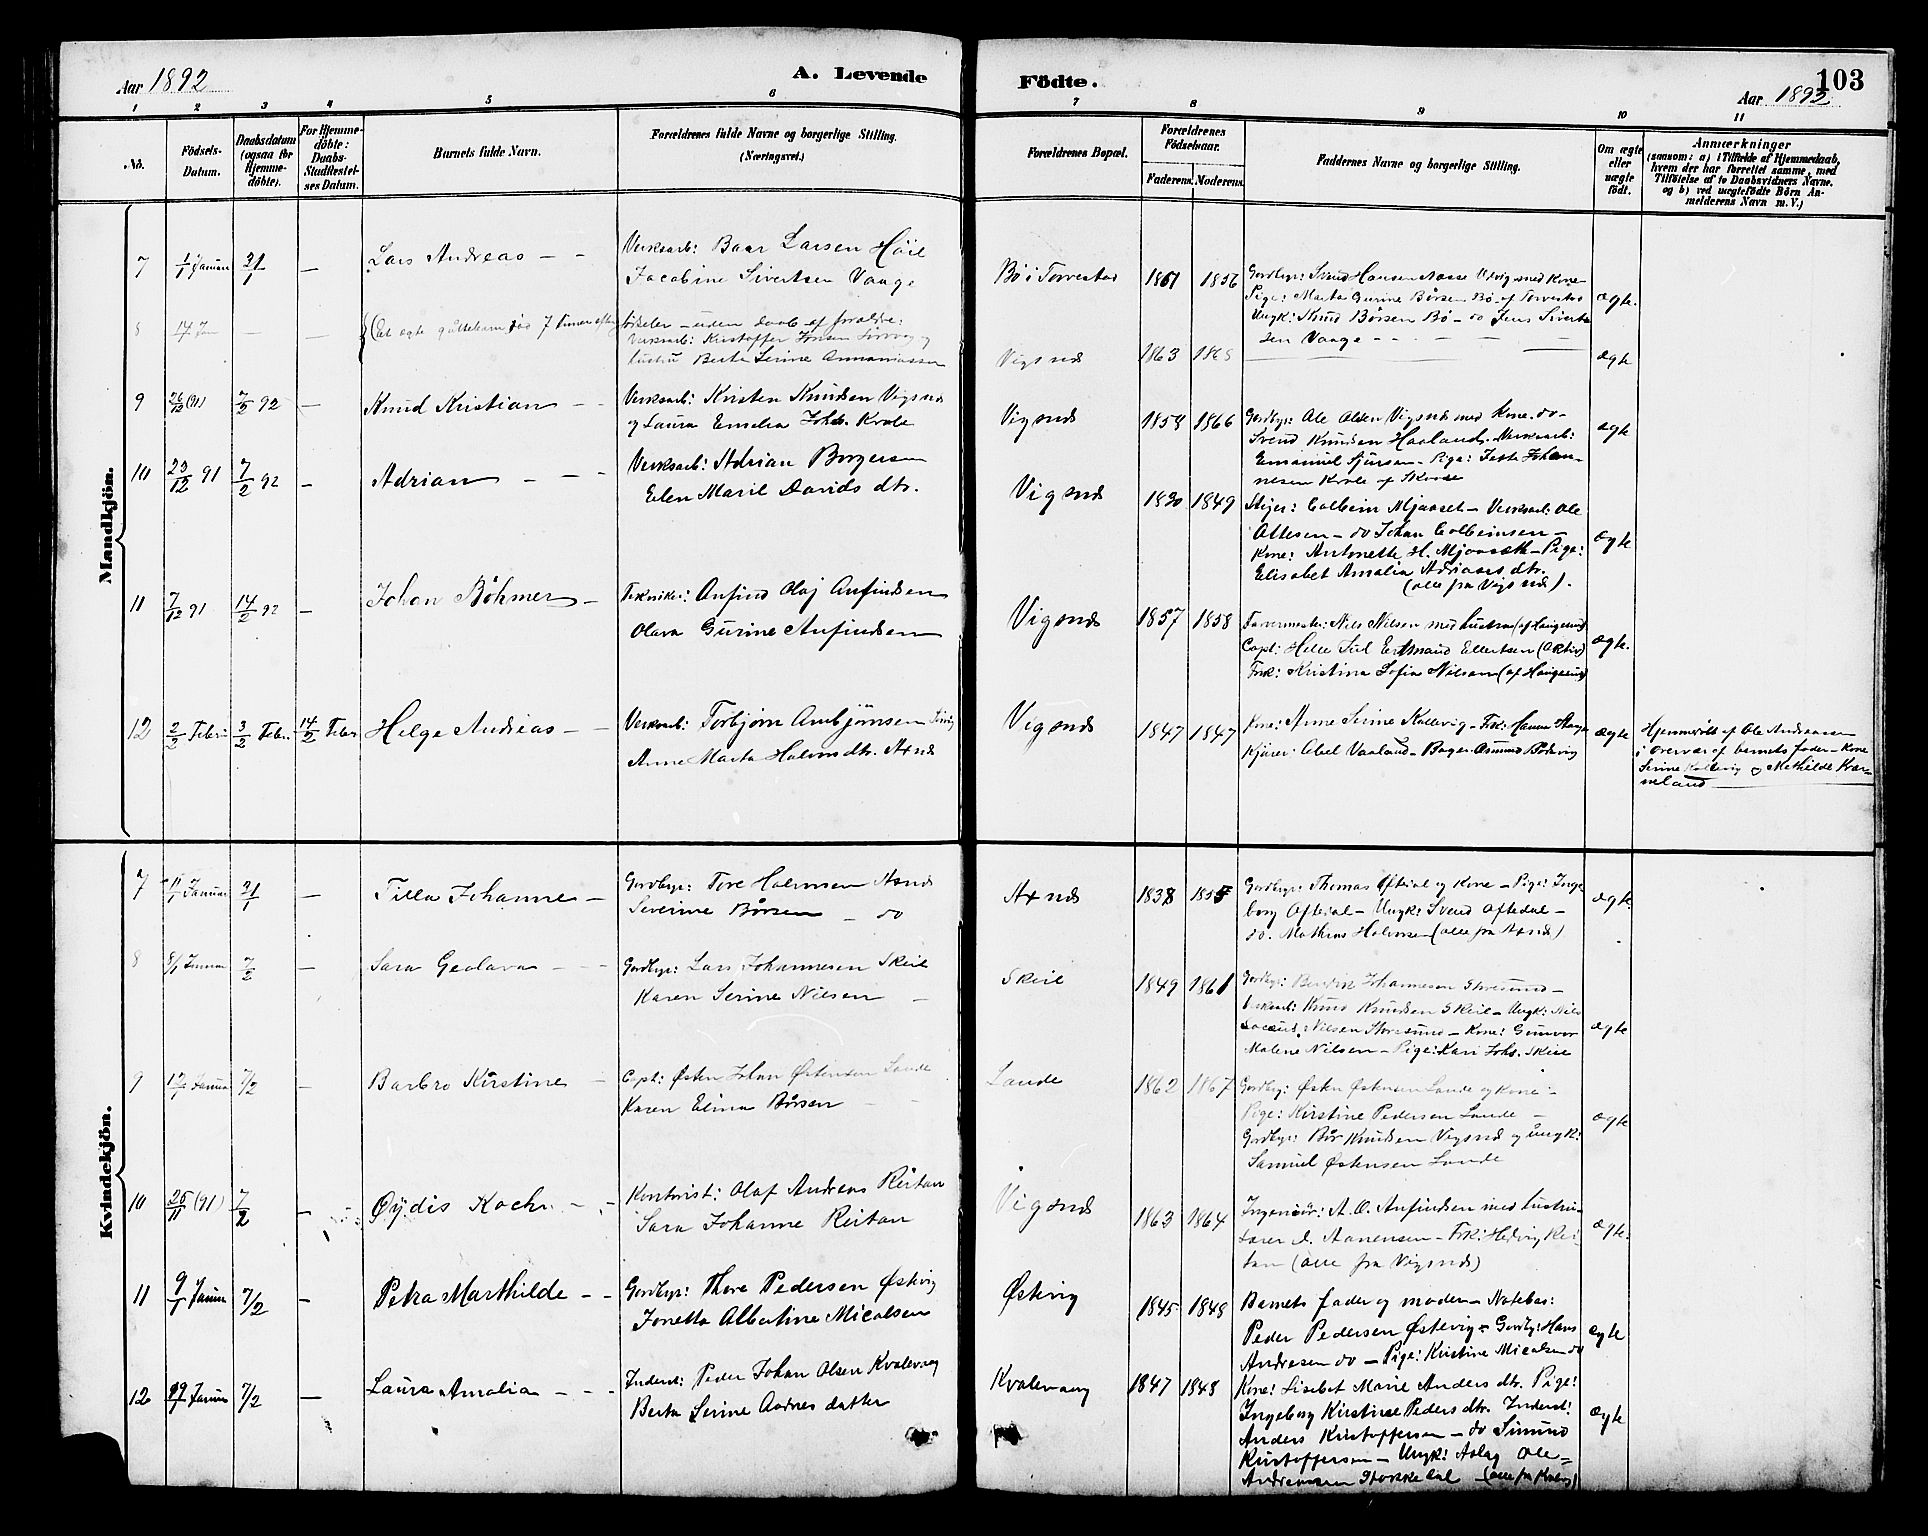 Aar 1892
A. Levende
Födte.
103
Aar 1892
1 2 3 4 5 6 7 8 9 10 11
No.
Födsels-
Datum.
Daabsdatum
(ogsaa for
Hjemme-
döbte).
For Hjemme-
döbte:
Daabs-
Stadfæstel-
ses Datum.
Barnets fulde Navn.
Forældrenes fulde Navne og borgerlige Stilling.
(Næringsvei.)
Forældrenes Bopæl.
Forældrenes
Födselsaar.
Faderens. Moderens.
Faddernes Navne og borgerlige Stilling.
Om ægte
eller
uægte
födt.
Anmærkninger
(saasom: a) i Tilfælde af Hjemmedaab,
hvem der har forrettet samme, med
Tilföielse af to Daabsvidners Navne.
og b) ved uægtefödte Börn An-
melderens Navn m. V.)
Mandkjön.
7 1/1 Januar 31/1 — Lars Andreas — -
Verksarb: Baar Larsen Høie
Jacobine Sivertsen Vaage
Bø i Torvestad 1861 1856
Gordbgr: Svend Hansen Nasse Udvig med Kone
Pige: Marta Gurine Børsen Bø af Torvestad
Ungk: Knud Børsen Bø - do Jens Siverts
sen Vaage
ægte.
8 14 Jan — — (Et ægte guttebarn død 7 Timer efter fødselen - uden daab af forældre:
Verksarb: Kristoffer Jonsen
hustru Berta Serine Annaniassen
Vigsnæs 1863 ægte
9 26/12 (91) 7/2 92 — Knud Kristian - -
Verksarb: Kristen Knudsen Vigsnæs
og Laura Emelia Johs. Kvale
Vigsnæs 1858 1866
Gordbgr: Ole Olsen Vigsnæs med Kone - do -
Svend Knudsen Haaland. Verksarb:
Emanuel Sjursen - Pige: Jette Johan-
nesen Kvale af Skaare
ægte
10 23/12 91 7/2 92 — Adrian - -
Verksarb: Adrian Borgersen
Elen Marie Davids dtr.
Vigsnæs 1830 1849
Stiger: Colbein Mjaaset - Verksarb: Ole
Ottesen - do Johan Colbeinsen -
Kone: Antonette H. Mjaaseth - Pige:
Elisabet Amalia Adrians dtr.
(alle fra Vigsnæs).
ægte
11 7/12 91 14/2 92 — Johan Böhmer -
Tekniker: Anfind Olaj Anfindsen
Olava Gurine Anfindsen
Vigsnæs 1857 1858
Farvermester: Nils Nilsen med hustru (af Haugesund)
Capt: Helle Juel Ertmand Ellertsen (Aktiv)
Frk: Kristina Sofia Nilsen (af Haugesund)
ægte.
12 2/2 Febr. 3/2 Febr. 14/2 Febr Helge Andreas - -
Verksarb: Torbjørn Ambjørnsen
Anne Marta Halvors dtr. Axnæs
Vigsnæs 1847 1847
Kone: Anne Serine Kallevig - Frk: Hanna
Kjører: Abel Vaaland - Bager Osmund Bødevig
ægte
Hjemmedøbt af Ole Andreassen
i overvær af barnets fader - Kone
Serine Kallevig og Mathilde Kvær-
neland
Kvindekjön.
7 11/1 Januar 31/1 — Tilla Johanne -
Gordbgr: Tore Halvorsen Axnæs
Severine Børsen - do
Axnæs 1838 1855
Gordbgr: Thomas Aftedal og Kone - Pige: Inge
borg Aftedal - Ungk: Svend Aftedal -
do. Mathias Halvorsen (alle fra Axnæs)
ægte.
8 8/1 Januar 7/2 — Sara Geolava - -
Gordbgr: Lars Johannesen Skeie
Karen Serine Nilsen
Skeie 1849 1861
Gordbgr: Johannesen Storesund -
Verksarb: Knud Knudsen Skeie - Ungk: Nils
Nilsen Storesund - Kone: Gunvor
Malene Nilsen - Pige: Kari Johs. Skeie
ægte
9 12 Januar 7/2 — Barbro Kirstine -
Capt: Østen Johan Østensen Lande
Karen Elina Børsen
Lande 1862 1867
Gordbgr: Østen Østensen Lande og Kone -
Pige: Kirstine Pedersen Lande -
Gordbgr: Bår Knudsen Vigsnæs og Ungk:
Samuel Østensen Lande
ægte
10 25/11 (91) 7/2 — Øydis Koch - -
Kontorist: Olaf Andreas Reitan
Sara Johanne Reitan
Vigsnæs 1863 1864
Ingeniør: A. O. Anfindsen med hustru -
A. Aanensen - Frk: Hedvig Rei-
tan (alle fra Vigsnæs)
ægte.
11 9/1 Januar 7/2 — Petra Marthilde - -
Gordbgr: Thore Pedersen Østevig
Jonetta Albertine Micalsen
Østevig 1845 1848
Barnets fader og moder - Notebas:
Peder Pedersen Østevig - Gordbgr: Hans
Andresen do - Pige: Kristine Micalsen do
ægte
12 29/1 Januar 7/2 — Laura Amalia - - -
Inderst: Peder Johan Olsen Kvalevaag
Berta Serine Aadnes datter
Kvalevaag 1847 1848
Kone: Lisebet Marie Anders dtr. Pige:
Ingeborg Kirstine Peders dtr. Inderst:
Anders Kristoffersen - do Simund
Kristoffersen - Ungk: Aslag Ole-
Andreassen Stokkedal - (alle fra Kvalvg)
ægte